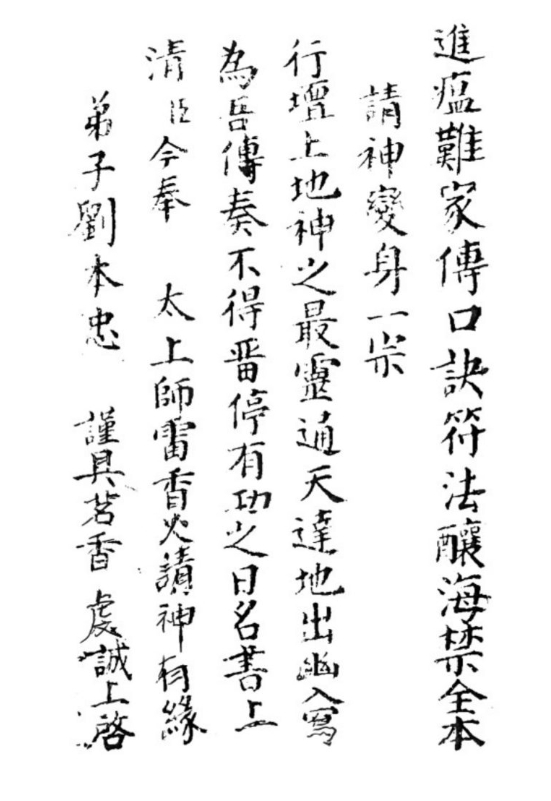 進瘟難家傳口訣符法釀海禁全本
請神變身一宗
行壇土地神之最靈通天達地出幽入窵
為吾傳奏不得畱停有功之日名書上
清 臣今奉 太上師雷香火請神有緣
弟子劉本忠 謹具茗香虔誠上啓